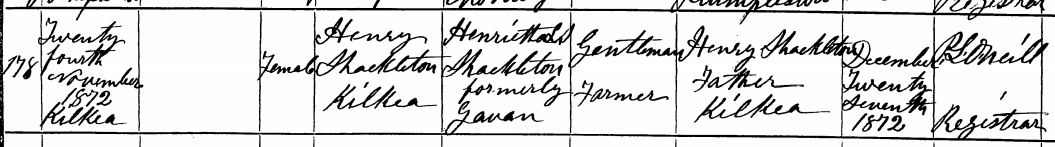 178
Twenty
fourth
November
1872
Kilkea
Female
Henry
Shackleton
Kilkea
Henrietta
Shackleton
formerly
Gavan
Gentleman
Farmer
Henry Shackleton
Father
Kilkea
December
Twenty
Seventh
1872
Registrar